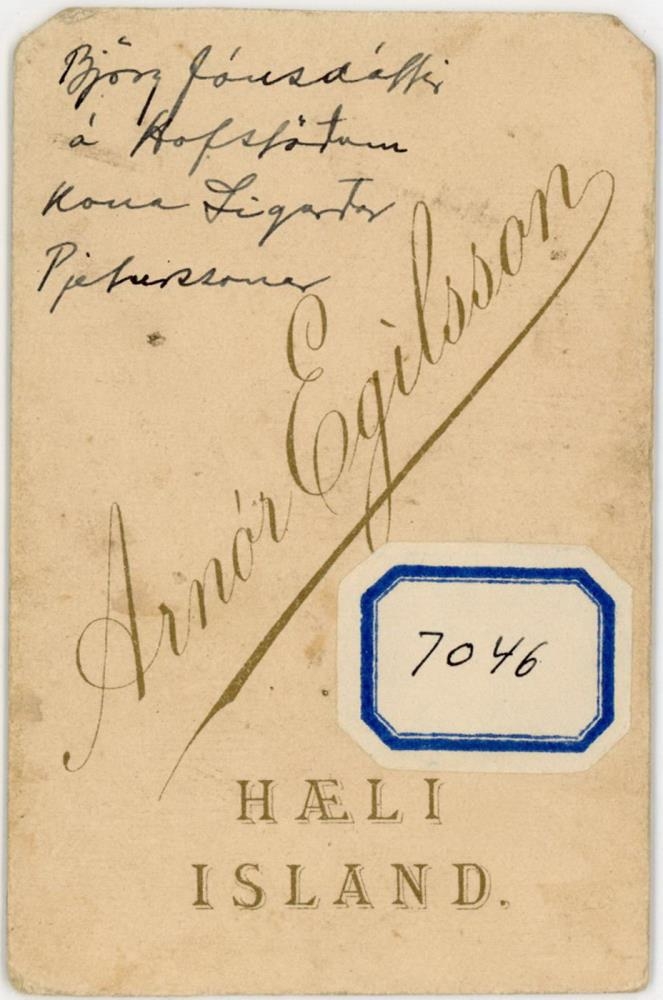 Björg Jónsdóttir
á Hofstöðum
Kona Sigurðar
Pjeturssonar
Arnór Egilsson
7046
HÆLI
ISLAND.